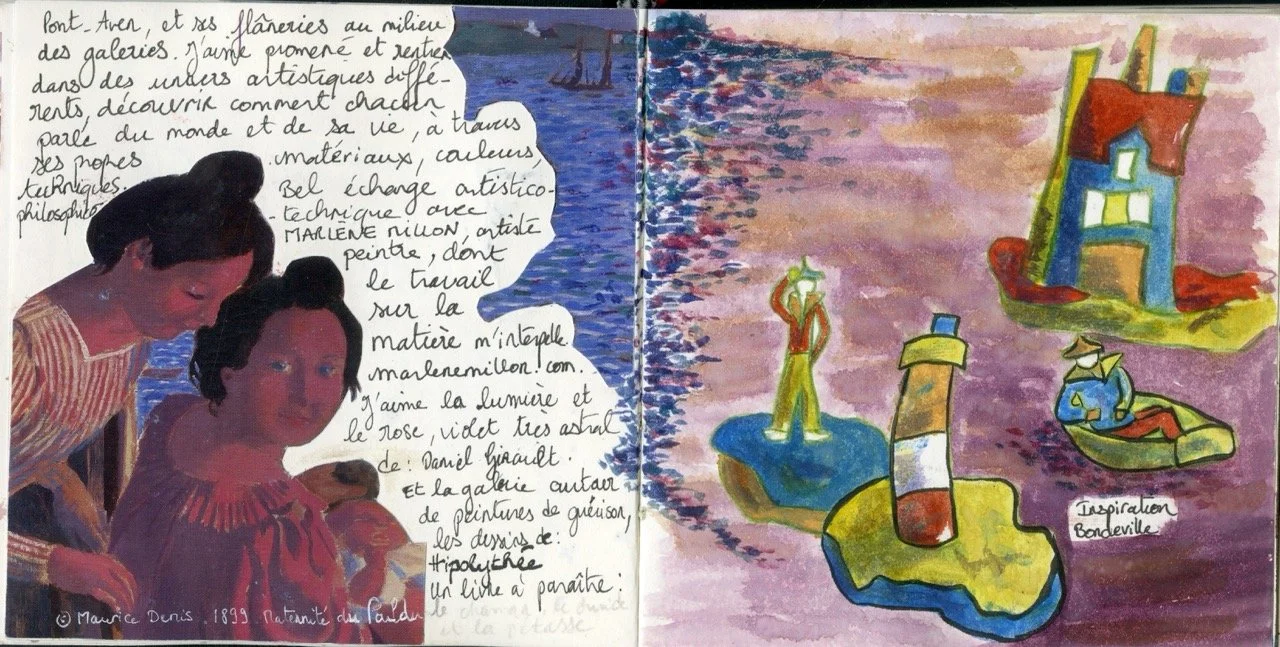 Pont-Aven, et ses flâneries au milieu
des galeries. J'aime promené et rentrer
dans des univers artistiques diffé-
rents, découvrir comment chacun
parle du monde et de sa vie, à travers
ses propres matériaux, couleurs,
techniques.
philosophies
Bel échange artistico-
-technique avec
MARLÈNE MILLON, artiste
peintre, dont
le travail
sur la
matière m'interpelle.
marlenemillon.com.
J'aime la lumière et
le rose, violet très astral
de: Daniel Girault.
Et la galerie
de peintures de guérison,
les dessins de:
Hipolythée
Un livre à paraître:
le change, le
et la
© Maurice Denis. 1899. Maternité du Pouldu
Inspiration
Bondeville